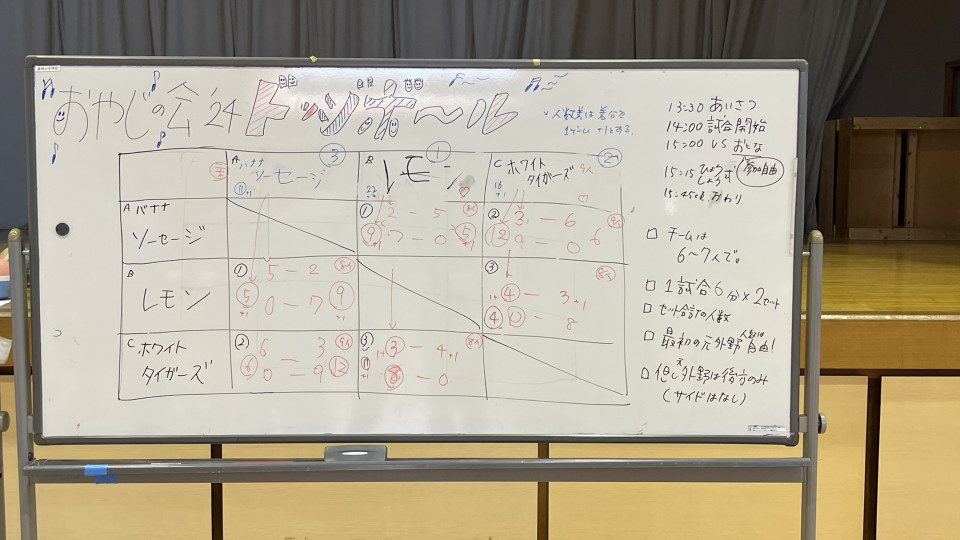 おやじの会 '24 ドッヂボール
∨人数差は差分を
1ゲーム +1とする.
A バナナ ソーセージ ③
B レモン ①
C ホワイト タイガーズ ② 9人
⑪+1
22
16 +1
A バナナ
ソーセージ
① 2 - 5 8人
⑨+1 7 - 0 ⑤+1
② 3 - 6 9人
⑫ 9 - 0 6
B
レモン
① 5 - 2 8人
⑤+1 0 - 7 ⑨+1
③ 8人
1+ ④ - 3 +1
④ 0 - 8
C ホワイト
タイガーズ
② 6 3 9人
⑥ 0 = 9 ⑫
③ 1+ ③ - 4 +1 8人
⑪+1 8 - 0
13:30 あいさつ
14:00 試合開始
15:00 VS おとな
参加自由
15:15 ひょうしょう式
15:45頃 おわり
□ チームは
6～7人で。
□ 1試合6分×2セット
□ セット合計の人数
□ 最初の元外野人数は自由!
□ 但し外野は後方のみ
(サイドはなし)